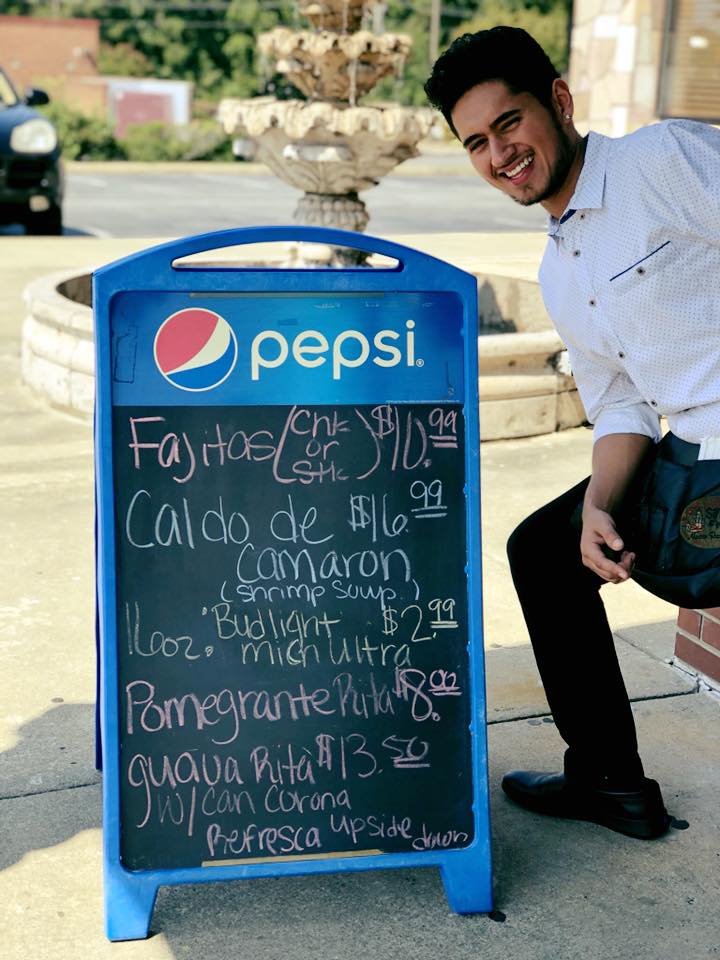 pepsi®
Fajitas (Chk or Stk) $10.99
Caldo de $16.99
Camaron
(shrimp Soup)
16oz. Bud light $2.99
mich Ultra
Pomegrante Rita $8.00
guava Rita $13.50
w/ Can Corona
Refresca upside down